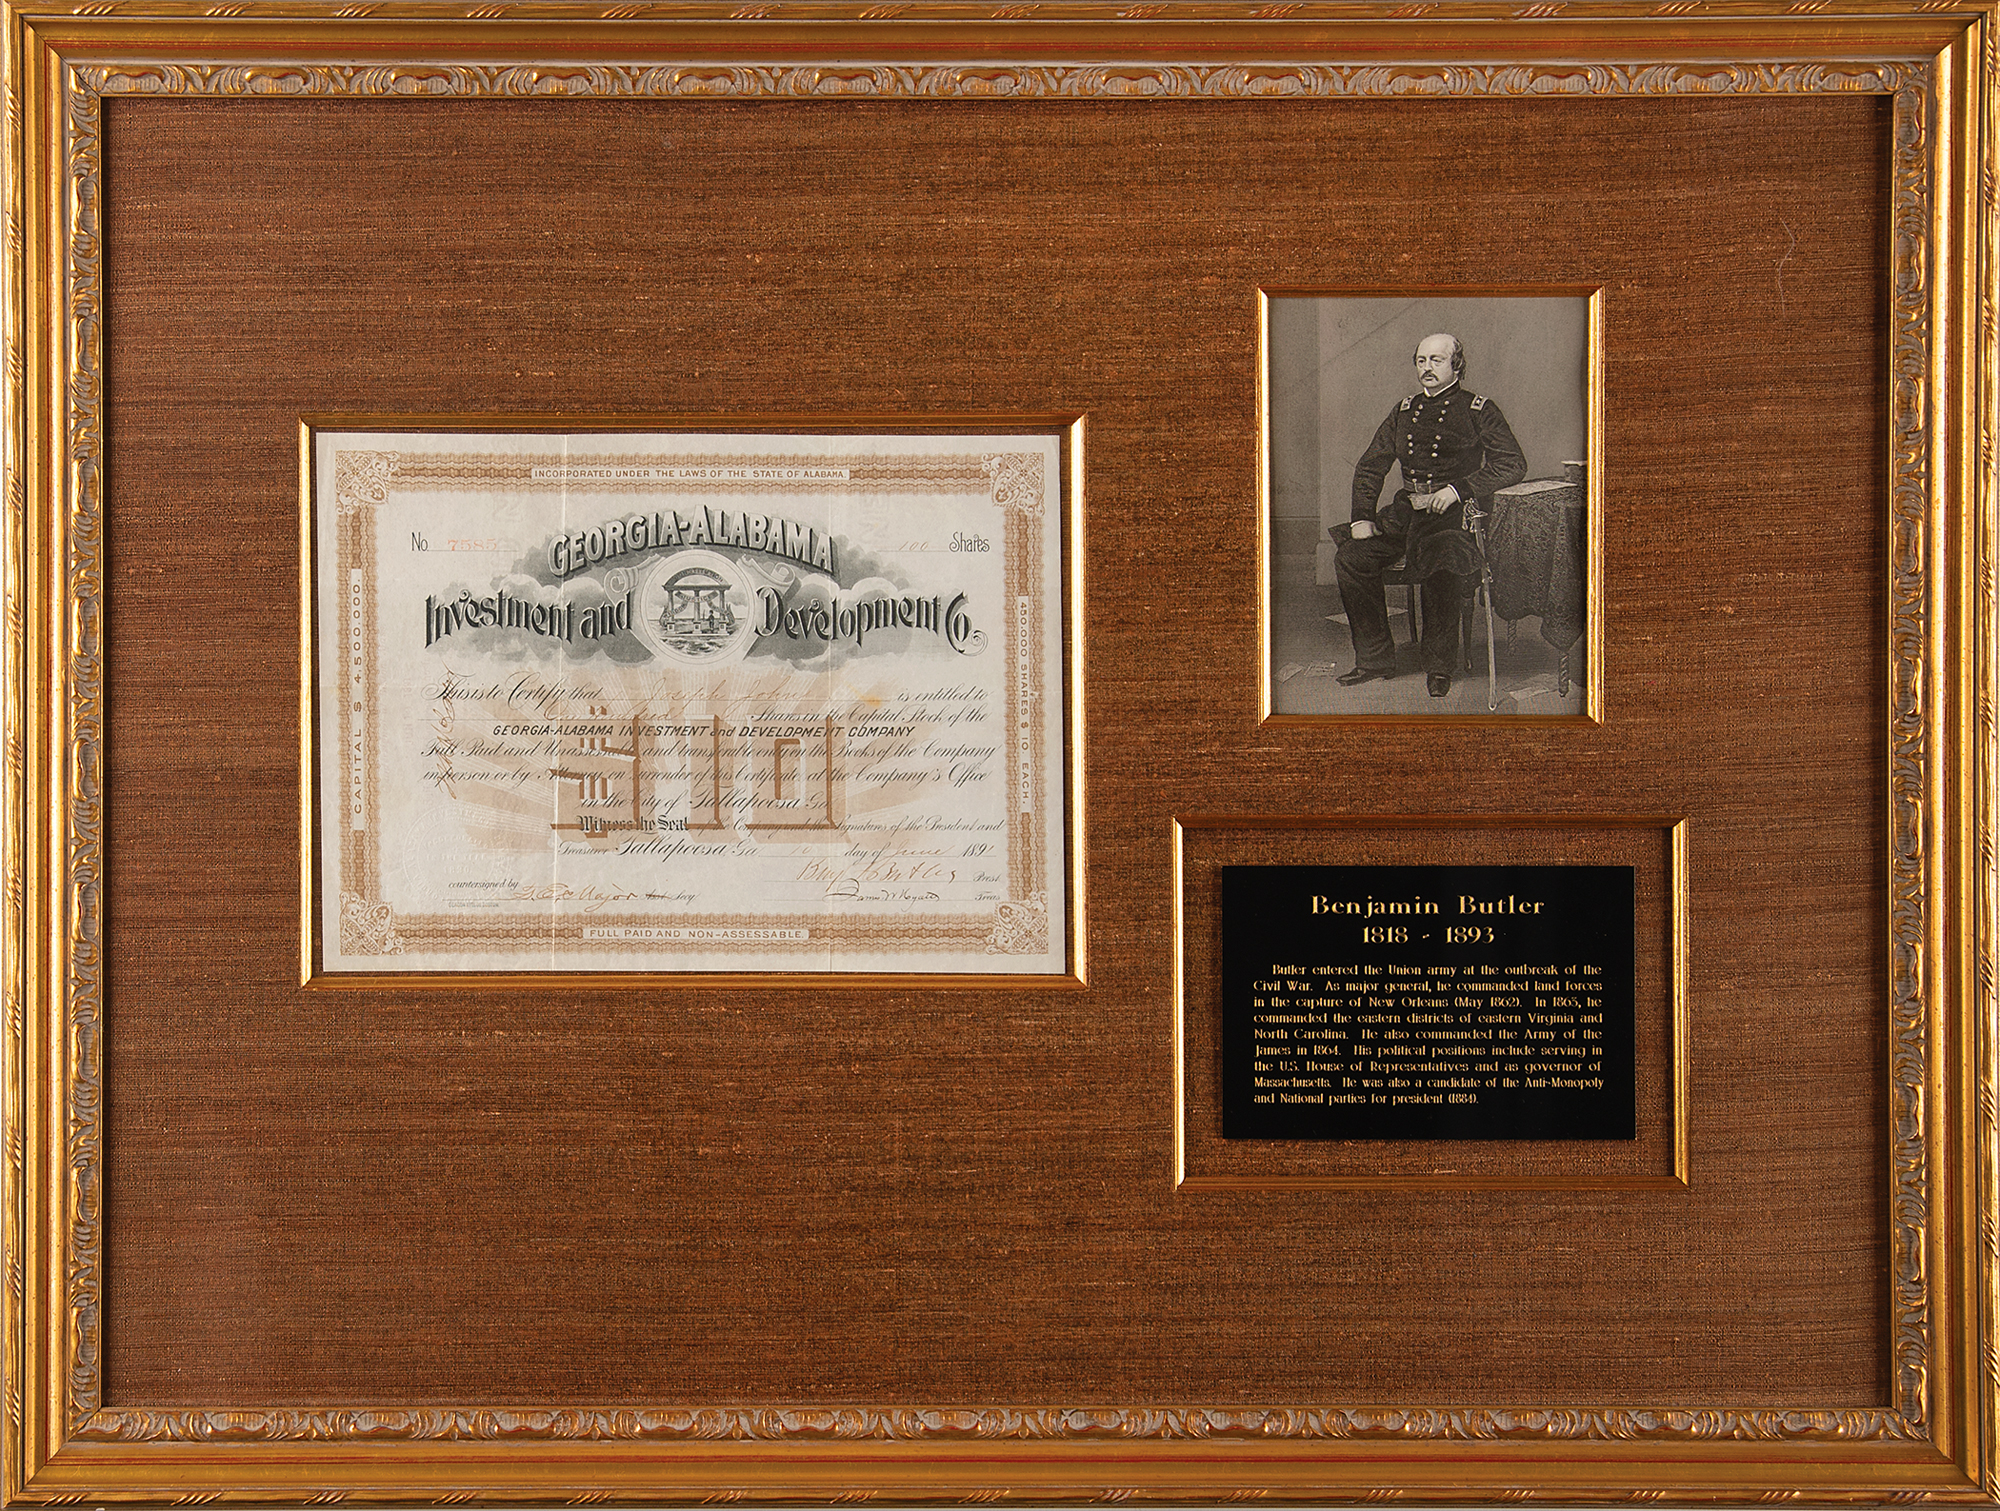 INCORPORATED UNDER THE LAWS OF THE STATE OF ALABAMA.
No 7585
100 Shares
GEORGIA-ALABAMA
Investment and Development Co.
CAPITAL $ 4,500,000.
450,000 SHARES $ 10. EACH.
This is to Certify that Joseph John is entitled to
Shares in the Capital Stock of the
GEORGIA-ALABAMA INVESTMENT and DEVELOPMENT COMPANY
Full Paid and Unassessable and transferable only on the Books of the Company
in person or by Attorney on Surrender of this Certificate at the Company's Office
in the City of Tallapoosa Ga.
Witness the Seal of the Company and the Signatures of the President and
Treasurer Tallapoosa, Ga. 10 day of June 1891
Prest.
countersigned by Secy. Treas.
FULL PAID AND NON-ASSESSABLE.
Benjamin Butler
1818 - 1893
Butler entered the Union army at the outbreak of the
Civil War. As major general, he commanded land forces
in the capture of New Orleans (May 1862). In 1863, he
commanded the eastern districts of eastern Virginia and
North Carolina. He also commanded the Army of the
James in 1864. His political positions include serving in
the U.S. House of Representatives and as governor of
Massachusetts. He was also a candidate of the Anti-Monopoly
and National parties for president (1884).